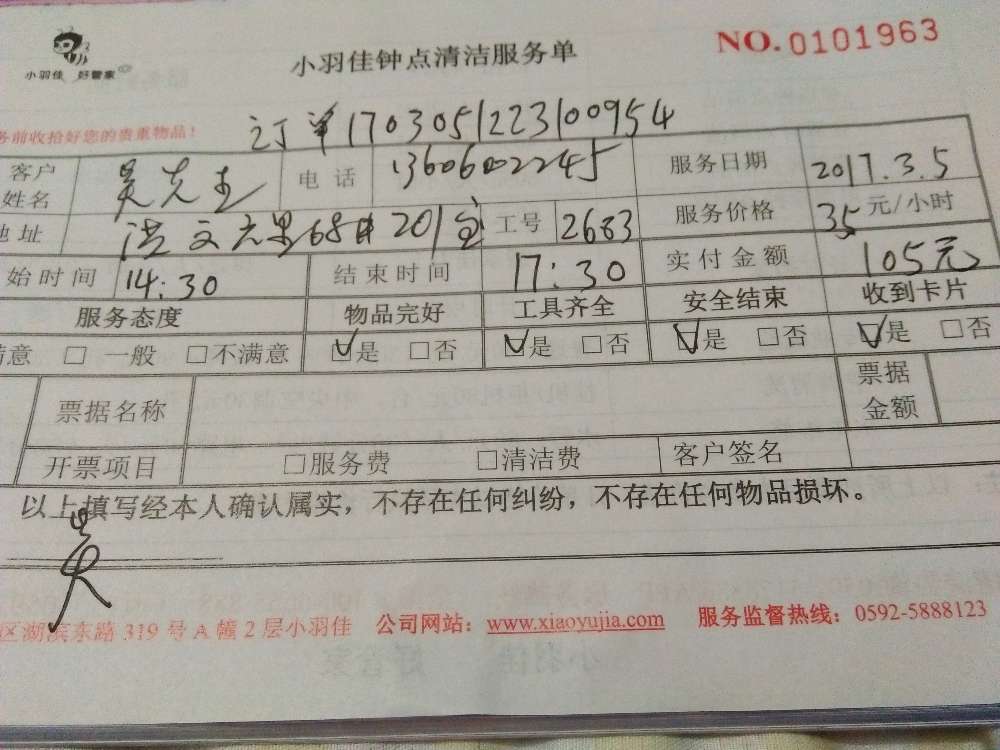 小羽佳 好管家
小羽佳钟点清洁服务单
NO.0101963
务前收拾好您的贵重物品!
订单1703051223100954
客户姓名 吴先生 电话 13606002245 服务日期 2017.3.5
地址 洪文六里68 201室 工号 2683 服务价格 35元/小时
始时间 14:30 结束时间 17:30 实付金额 105元
服务态度 物品完好 工具齐全 安全结束 收到卡片
满意 □ 一般 □不满意 ☑是 □否 ☑是 □否 ☑是 □否 ☑是 □否
票据名称 票据金额
开票项目 □服务费 □清洁费 客户签名
以上填写经本人确认属实，不存在任何纠纷，不存在任何物品损坏。
吴
区湖滨东路 319 号 A 幢 2 层小羽佳 公司网站：www.xiaoyujia.com 服务监督热线：0592-5888123